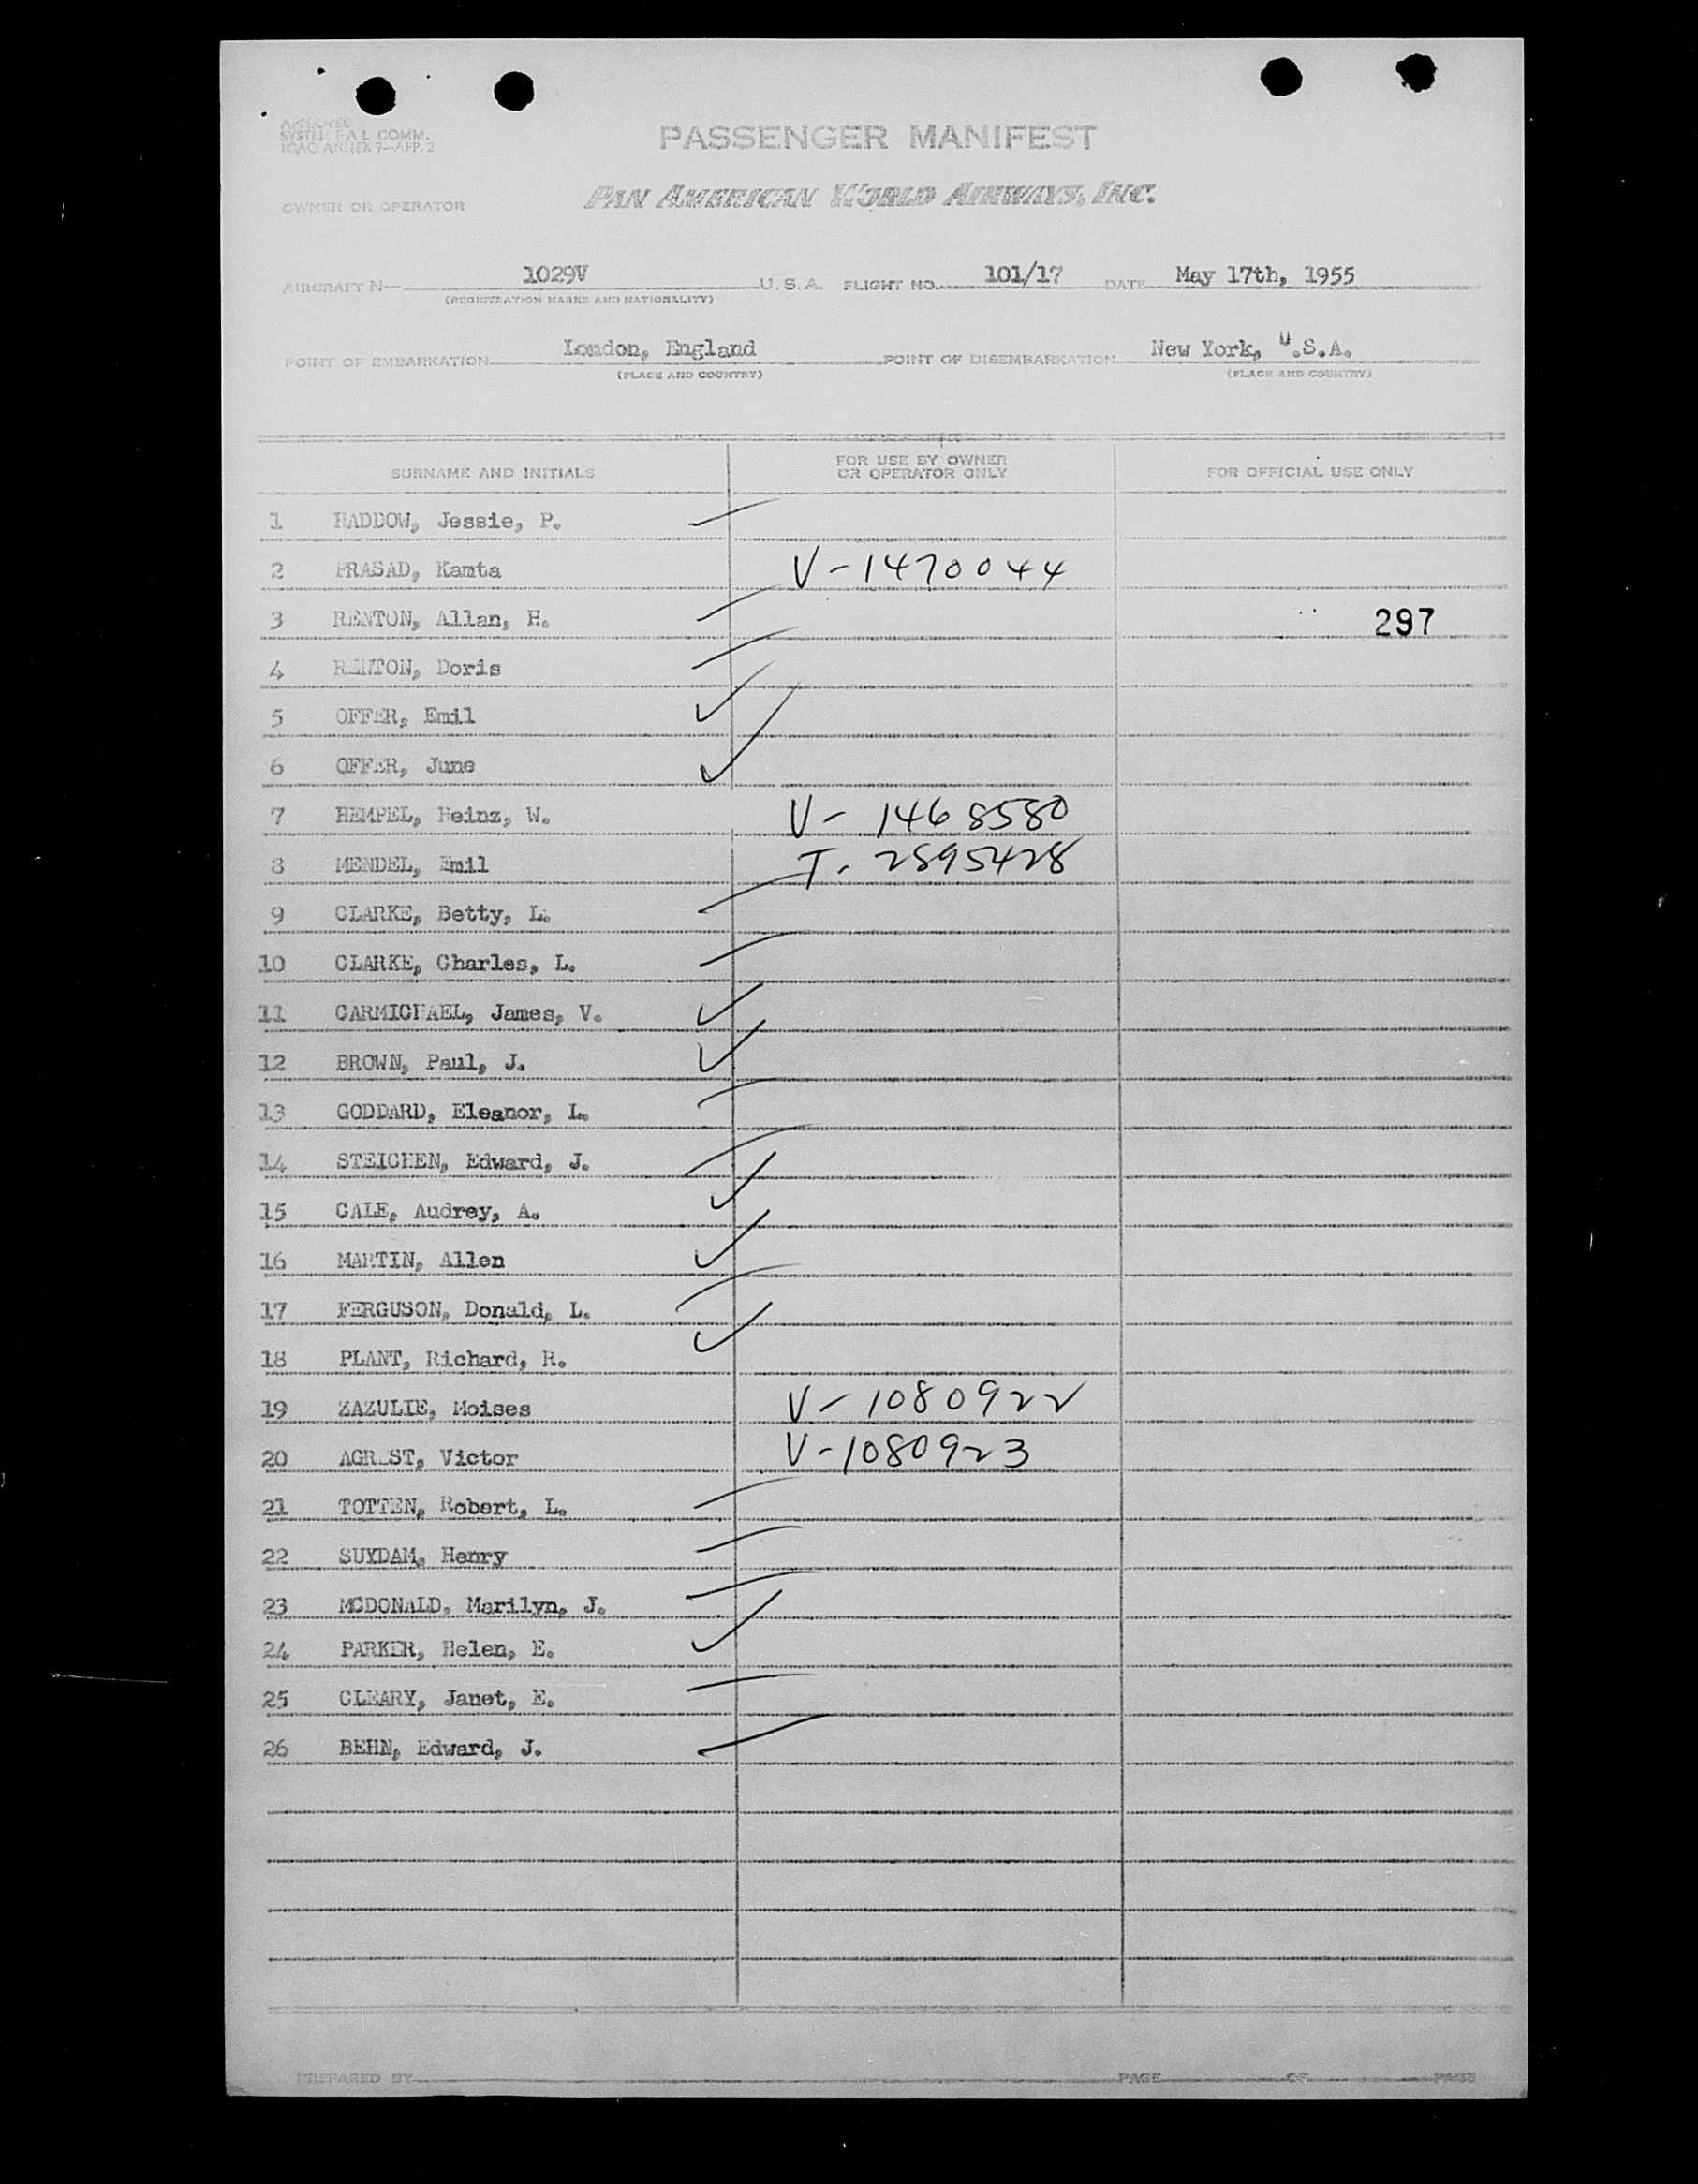 APPROVED
SYSTEM F.A.L. COMM.
ICAO ANNEX 9—APP. 2
PASSENGER MANIFEST
OWNER OR OPERATOR PAN AMERICAN WORLD AIRWAYS, INC.
AIRCRAFT N— 1029V U. S. A. FLIGHT NO. 101/17 DATE May 17th, 1955
(REGISTRATION MARKS AND NATIONALITY)
POINT OF EMBARKATION London, England POINT OF DISEMBARKATION New York, U.S.A.
(PLACE AND COUNTRY) (PLACE AND COUNTRY)
SURNAME AND INITIALS FOR USE BY OWNER OR OPERATOR ONLY FOR OFFICIAL USE ONLY
1 HADDOW, Jessie, P.
2 PRASAD, Kamta V-1470044
3 RENTON, Allan, H. 297
4 RENTON, Doris
5 OFFER, Emil
6 OFFER, June
7 HEMPEL, Heinz, W. V- 1468580
8 MENDEL, Emil T. 2895428
9 CLARKE, Betty, L.
10 CLARKE, Charles, L.
11 CARMICHAEL, James, V.
12 BROWN, Paul, J.
13 GODDARD, Eleanor, L.
14 STEICHEN, Edward, J.
15 CALE, Audrey, A.
16 MARTIN, Allen
17 FERGUSON, Donald, L.
18 PLANT, Richard, R.
19 ZAZULIE, Moises V-1080922
20 AGREST, Victor V-1080923
21 TOTTEN, Robert, L.
22 SUYDAM, Henry
23 MCDONALD, Marilyn, J.
24 PARKER, Helen, E.
25 CLEARY, Janet, E.
26 BEHN, Edward, J.
PREPARED BY PAGE OF PAGE